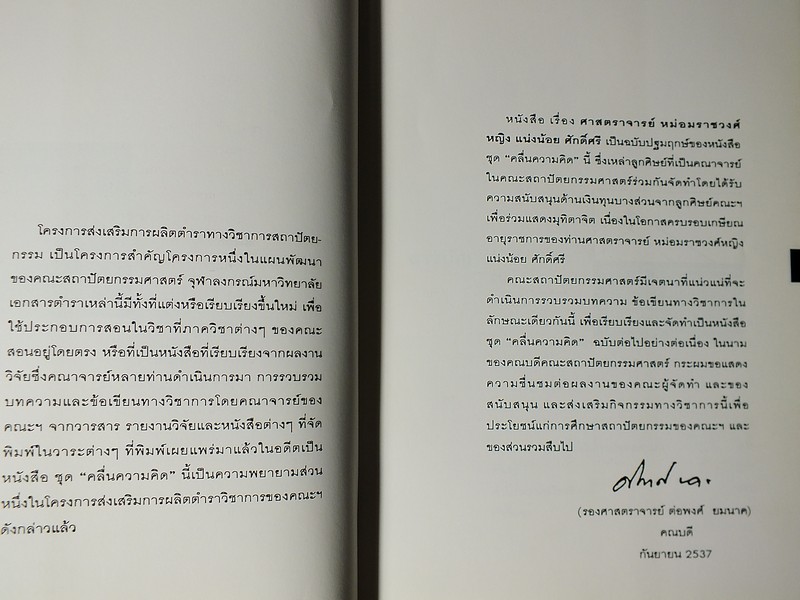 โครงการส่งเสริมการผลิตตำราทางวิชาการสถาปัตย-
กรรม เป็นโครงการสำคัญโครงการหนึ่งในแผนพัฒนา
ของคณะสถาปัตยกรรมศาสตร์ จุฬาลงกรณ์มหาวิทยาลัย
เอกสารตำราเหล่านี้มีทั้งที่แต่งหรือเรียบเรียงขึ้นใหม่ เพื่อ
ใช้ประกอบการสอนในวิชาที่ภาควิชาต่างๆ ของคณะ
สอนอยู่โดยตรง หรือที่เป็นหนังสือที่เรียบเรียงจากผลงาน
วิจัยซึ่งคณาจารย์หลายท่านดำเนินการมา การรวบรวม
บทความและข้อเขียนทางวิชาการโดยคณาจารย์ของ
คณะฯ จากวารสาร รายงานวิจัยและหนังสือต่างๆ ที่จัด
พิมพ์ในวาระต่างๆ ที่พิมพ์เผยแพร่มาแล้วในอดีตเป็น
หนังสือ ชุด “คลื่นความคิด” นี้เป็นความพยายามส่วน
หนึ่งในโครงการส่งเสริมการผลิตตำราวิชาการของคณะฯ
ดังกล่าวแล้ว
หนังสือ เรื่อง ศาสตราจารย์ หม่อมราชวงศ์
หญิง แน่งน้อย ศักดิ์ศรี เป็นฉบับปฐมฤกษ์ของหนังสือ
ชุด “คลื่นความคิด” นี้ ซึ่งเหล่าลูกศิษย์ที่เป็นคณาจารย์
ในคณะสถาปัตยกรรมศาสตร์ร่วมกันจัดทำโดยได้รับ
ความสนับสนุนด้านเงินทุนบางส่วนจากลูกศิษย์คณะฯ
เพื่อร่วมแสดงมุทิตาจิต เนื่องในโอกาสครบรอบเกษียณ
อายุราชการของท่านศาสตราจารย์ หม่อมราชวงศ์หญิง
แน่งน้อย ศักดิ์ศรี
คณะสถาปัตยกรรมศาสตร์มีเจตนาที่แน่วแน่ที่จะ
ดำเนินการรวบรวมบทความ ข้อเขียนทางวิชาการใน
ลักษณะเดียวกันนี้ เพื่อเรียบเรียงและจัดทำเป็นหนังสือ
ชุด “คลื่นความคิด” ฉบับต่อไปอย่างต่อเนื่อง ในนาม
ของคณบดีคณะสถาปัตยกรรมศาสตร์ กระผมขอแสดง
ความชื่นชมต่อผลงานของคณะผู้จัดทำ และของ
สนับสนุน และส่งเสริมกิจกรรมทางวิชาการนี้เพื่อ
ประโยชน์แก่การศึกษาสถาปัตยกรรมของคณะฯ และ
ของส่วนรวมสืบไป
(รองศาสตราจารย์ ต่อพงศ์ ยมนาค)
คณบดี
กันยายน 2537